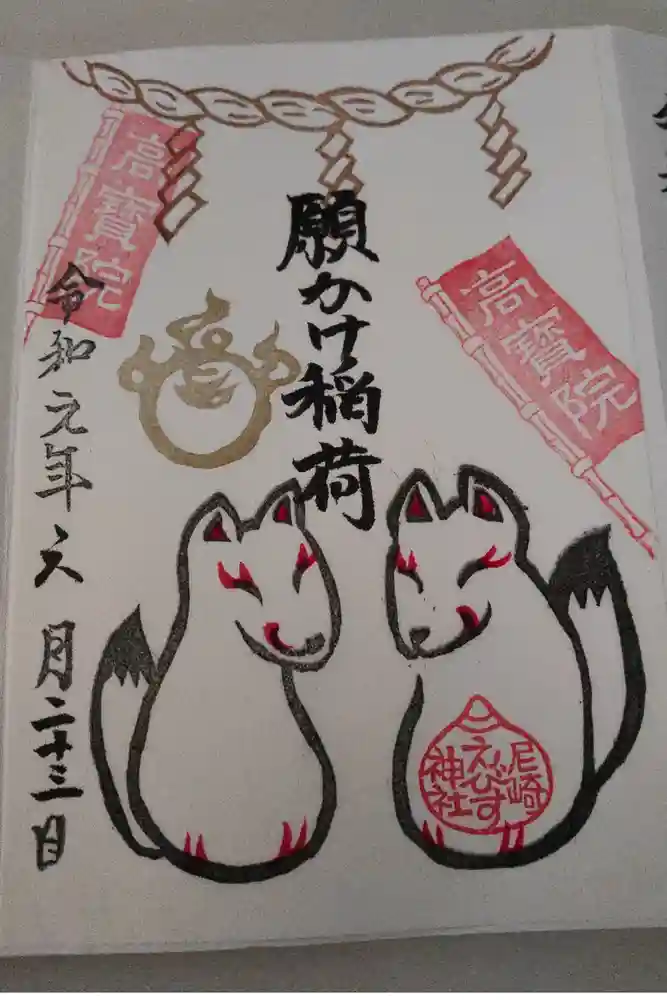 願かけ稲荷
高寳院
高寳院
令和元年六月二十三日
尼崎
えびす
神社